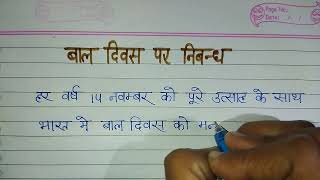 Page No.
Date
बाल दिवस पर निबन्ध
हर वर्ष 14 नवम्बर को पूरे उत्साह के साथ
भारत मे बाल दिवस को मन